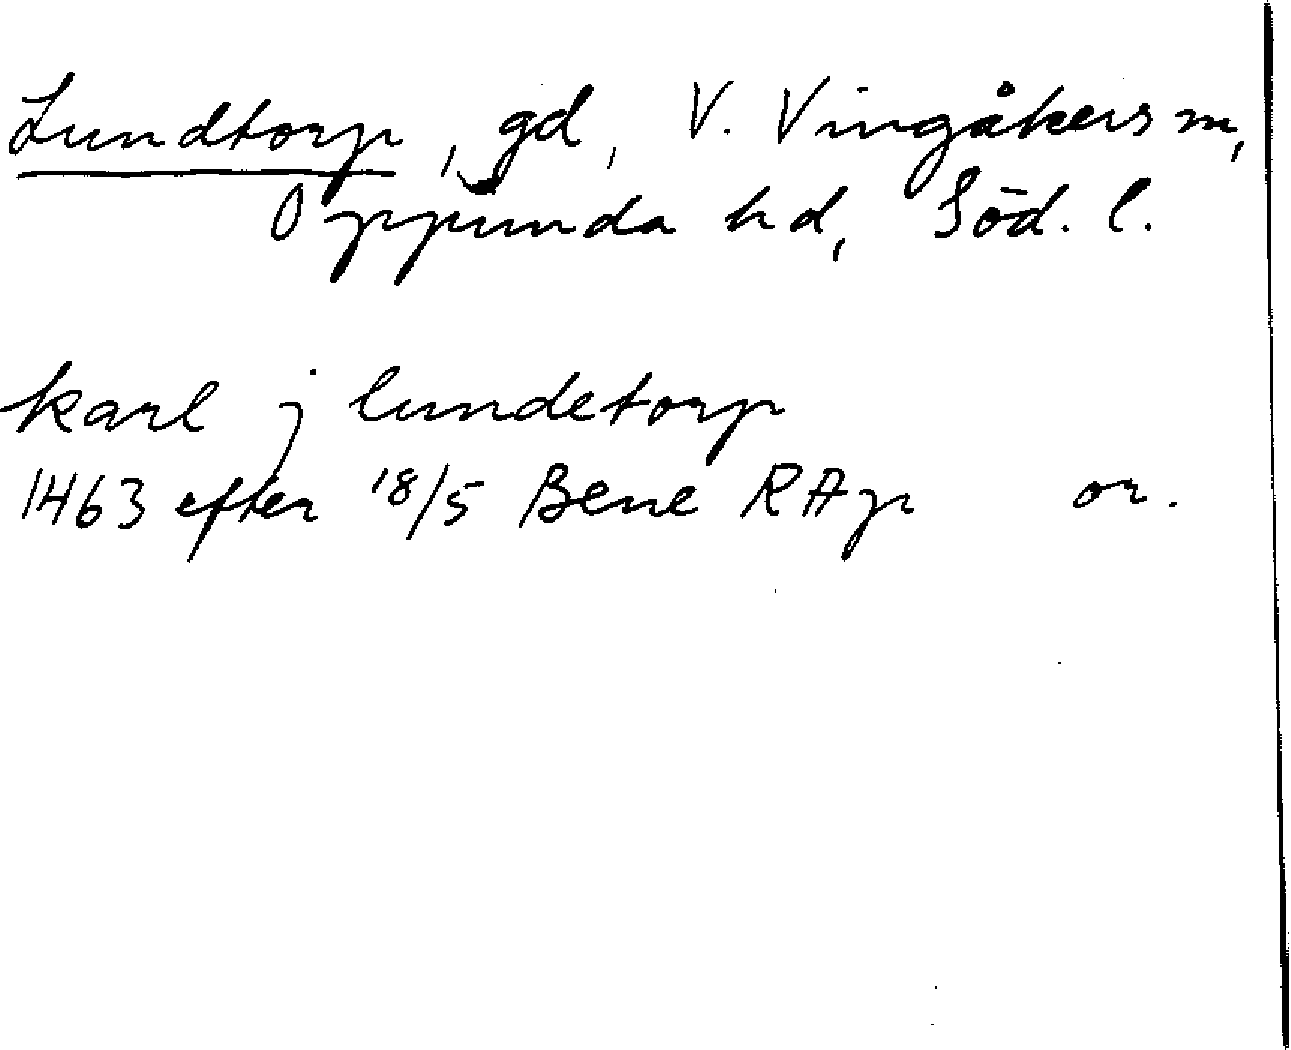 Lundtorp, gd, V. Vingåkers sn,
Oppunda hd, Söd. l.
karl j lundetorp
1463 efter 18/5 Bene RAp or.